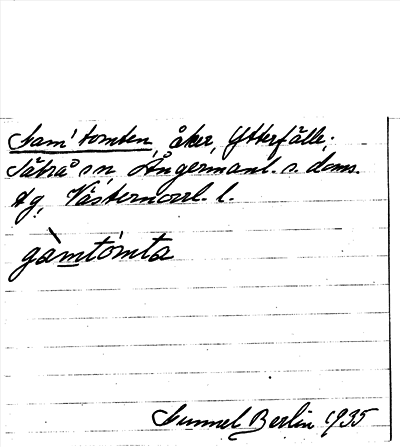 Gam'tomten, åker, Ytterfälle,
Säbrå sn, Ångermanl. s. doms.
tg, Västernorrl. l.
gàmtómta
Gunnel Berlin 1935